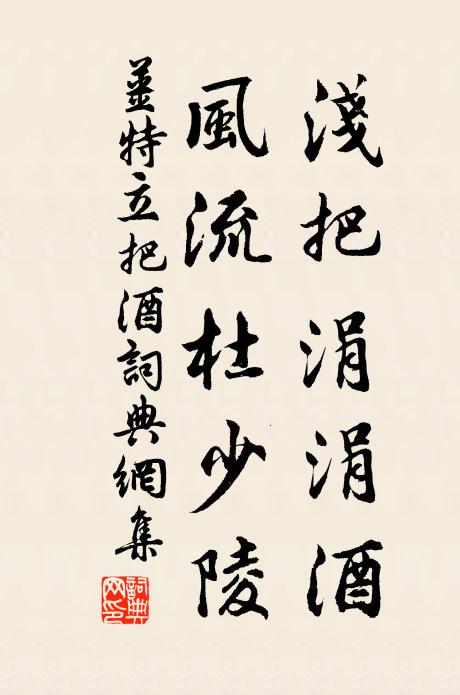 淺把涓涓酒
風流杜少陵
薑特立把酒詞典網集
詞典網印